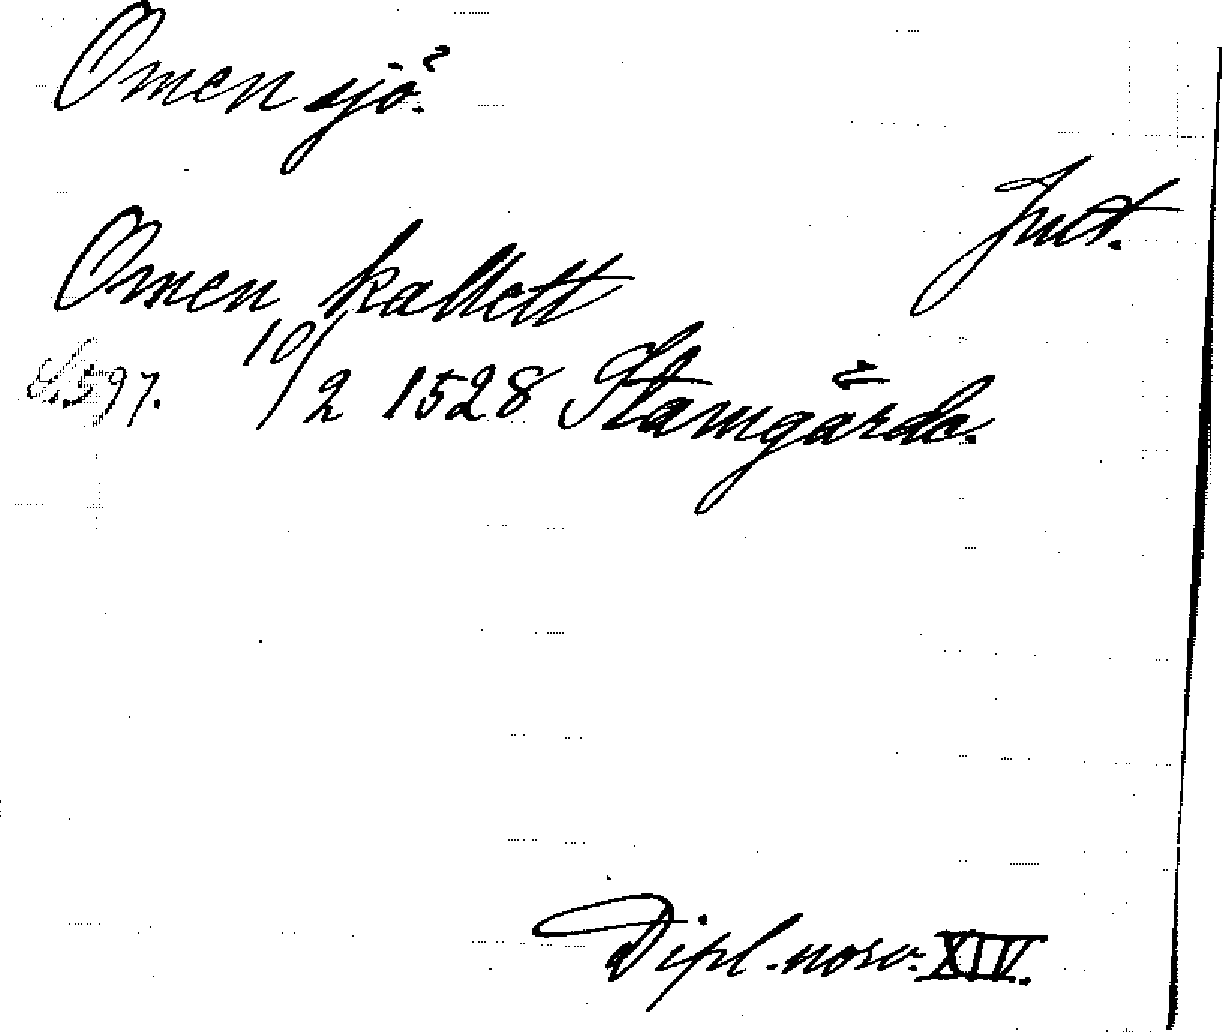 Omen sjö.
Just.
Omen kallett
S. 597. 10/2 1528 Stamgärde.
Dipl. norv. XIV.